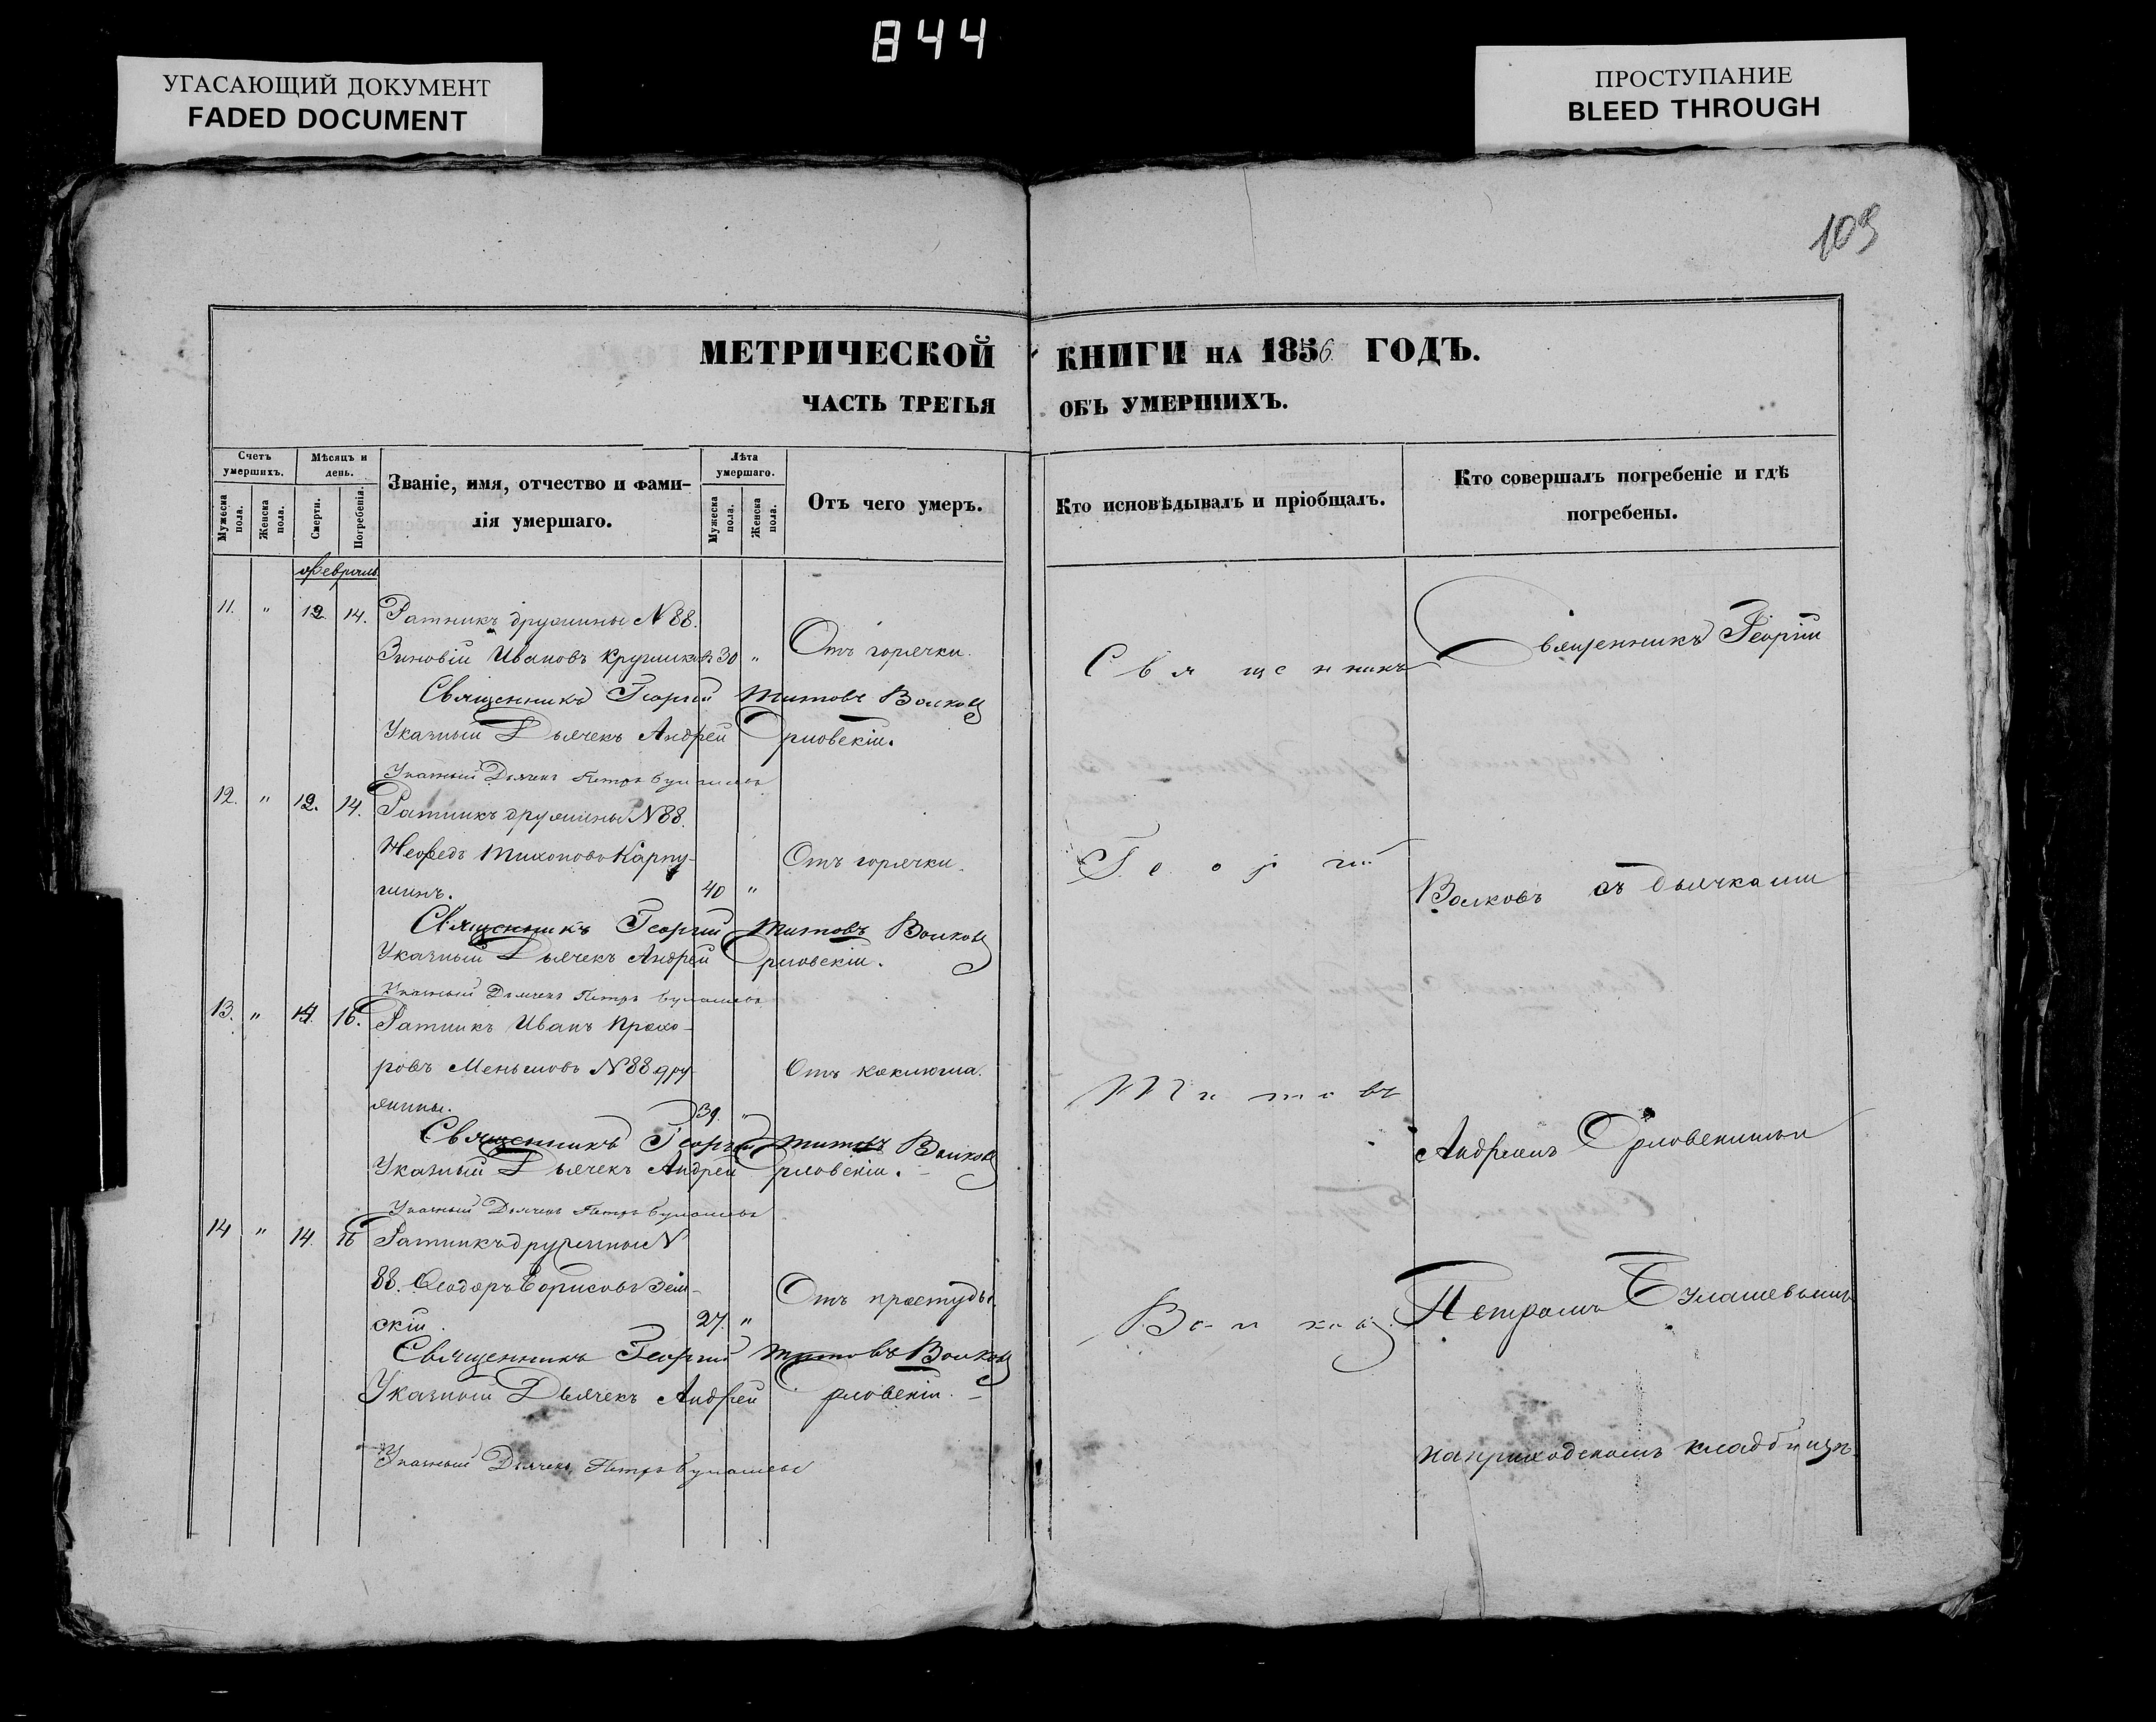 844
УГАСАЮЩИЙ ДОКУМЕНТ
FADED DOCUMENT
ПРОСТУПАНИЕ
BLEED THROUGH
109
МЕТРИЧЕСКОЙ КНИГИ НА 1856 ГОДЪ.
ЧАСТЬ ТРЕТЬЯ ОБЪ УМЕРШИХЪ.
Счетъ умершихъ.
Мужеска пола.
Женска пола.
Мѣсяцъ и день.
Смерти.
Погребенія.
Званіе, имя, отчество и фамилія умершаго.
Лѣта умершаго.
Мужеска пола.
Женска пола.
Отъ чего умеръ.
Кто исповѣдывалъ и пріобщалъ.
Кто совершалъ погребеніе и гдѣ погребены.
Февраль
11. " 12. 14. Ратникъ дружины N 88.
Зиновій Ивановъ Кругликовъ 30 " Отъ горячки.
Священникъ Георгій Титовъ Волковъ
Указный Дьячекъ Андрей Орловскій.
Указный Дьячекъ Петръ Булашевъ
12. " 12. 14. Ратникъ дружины N 88.
Тихоновъ Карпу-
шинъ. 40 " Отъ горячки.
Священникъ Георгій Титовъ Волковъ
Указный Дьячекъ Андрей Орловскій.
Указный Дьячекъ Петръ Булашевъ
13. " 14. 16. Ратникъ Иванъ Прохо-
ровъ Меньшовъ N 88 дру- Отъ коклюша.
жины. 39. "
Священникъ Георгій Титовъ Волковъ
Указный Дьячекъ Андрей Орловскій.
Указный Дьячекъ Петръ Булашевъ
14 " 14. 16 Ратникъ дружины N
88. Ѳеодоръ Борисовъ
скій. 27. " Отъ простуды.
Священникъ Георгій Титовъ Волковъ
Указный Дьячекъ Андрей Орловскій.
Указный Дьячекъ Петръ Булашевъ
Священникъ
Георгій
Титовъ
Волковъ
Священникъ Георгій
Волковъ съ дьячками
Андреемъ Орловскимъ и
Петромъ Булашевымъ
на приходскомъ кладбищѣ.